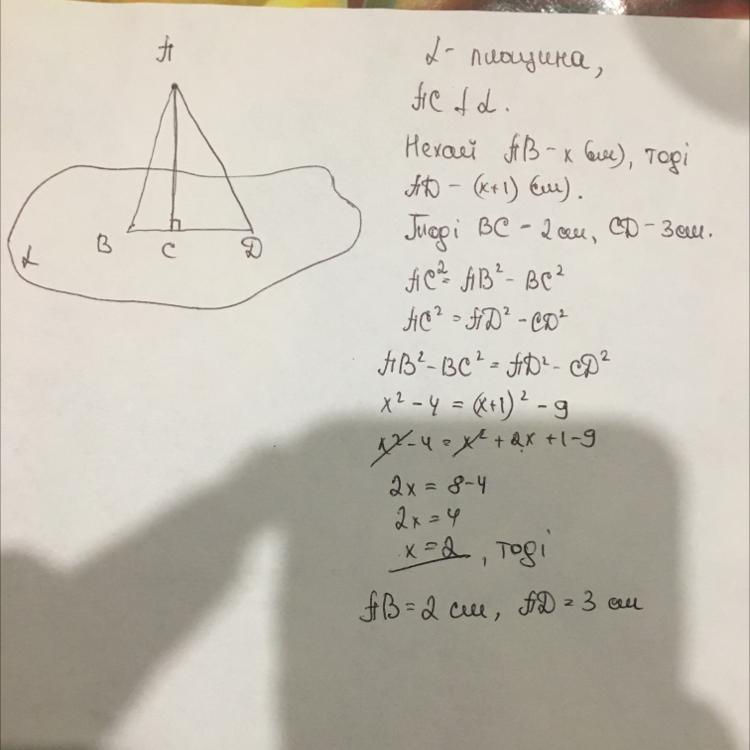 A
B
C
D
α
α - площина,
AC ⊥ α.
Нехай AB - x (см), тоді
AD - (x+1) (см).
Тоді BC - 2 см, CD - 3 см.
AC² = AB² - BC²
AC² = AD² - CD²
AB² - BC² = AD² - CD²
x² - 4 = (x+1)² - 9
x² - 4 = x² + 2x + 1 - 9
2x = 8 - 4
2x = 4
x = 2, тоді
AB = 2 см, AD = 3 см